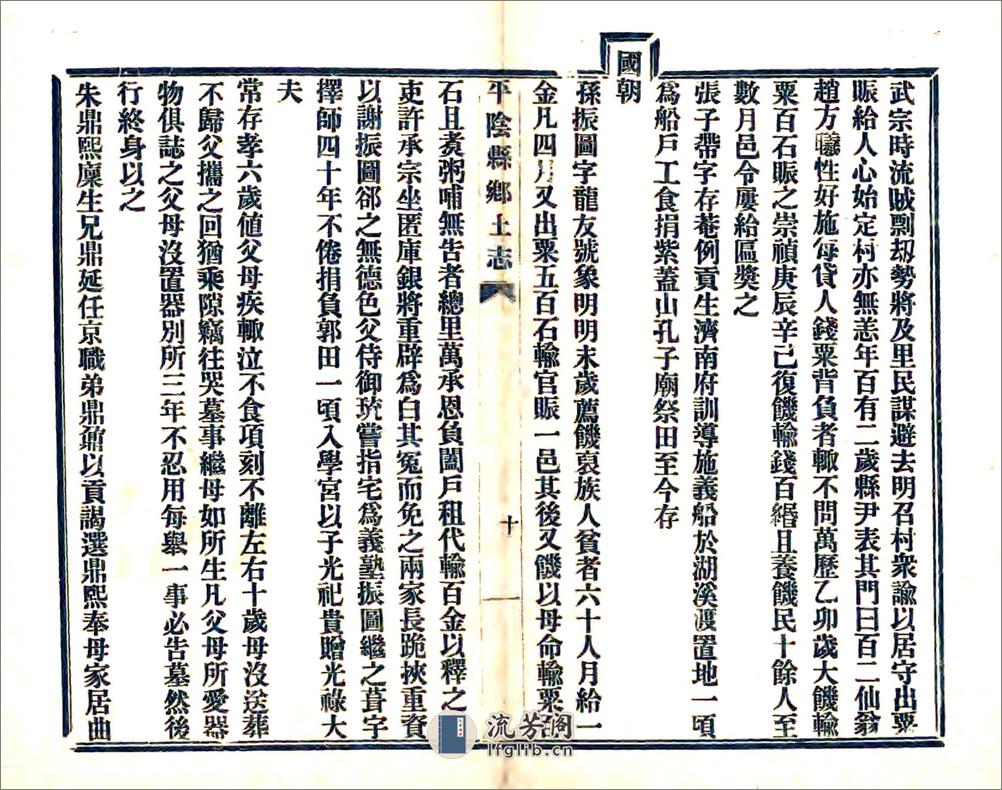 武宗時流賊剽刼勢將及里民謀避去明召村衆諭以居守出粟
賑給人心始定村亦無恙年百有二歲縣尹表其門曰百二仙翁
趙方曦性好施每貸人錢粟背負者輒不問萬歷乙卯歲大饑輸
粟百石賑之崇禎庚辰辛巳復饑輸錢百緡且養饑民十餘人至
數月邑令屢給區奬之
張子帶字存菴例貢生濟南府訓導施義船於湖溪渡置地一頃
爲船戶工食捐紫蓋山孔子廟祭田至今存
國朝
孫振圖字龍友號象明明末歲薦饑裒族人貧者六十人月給一
金凡四月又出粟五百石輸官賑一邑其後又饑以母命輸粟
平陰縣鄉土志
十
石且煮粥哺無告者總里萬承恩負闔戶租代輸百金以釋之
吏許承宗坐匿庫銀將重辟爲白其冤而免之兩家長跪挾重資
以謝振圖郤之無德色父侍御珫嘗指宅爲義塾振圖繼之葺宇
擇師四十年不倦捐負郭田一頃入學宮以子光祀貴贈光祿大
夫
常存孝六歲値父母疾輒泣不食項刻不離左右十歲母沒送葬
不歸父攜之回猶乘隙竊往哭墓事繼母如所生凡父母所愛器
物俱誌之父母沒置器別所三年不忍用每舉一事必告墓然後
行終身以之
朱鼎熙廩生兄鼎延任京職弟鼎鼐以貢謁選鼎熙奉母家居曲
流芳閣
lfglib.cn